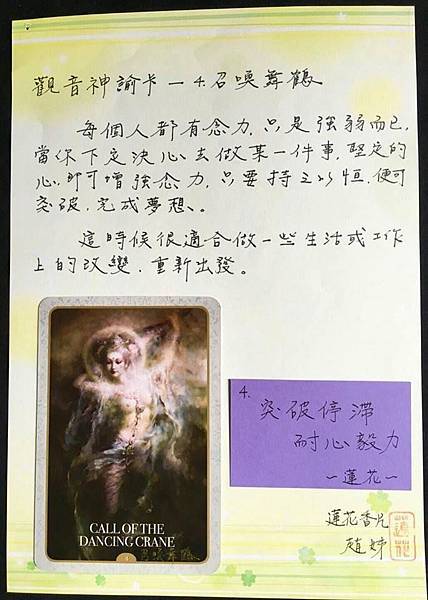 觀音神諭卡一4.召喚舞鶴
每個人都有念力,只是強弱而已,
當你下定決心去做某一件事,堅定的
心,即可增強念力,只要持之以恒,便可
突破,完成夢想、。
這時候很適合做一些生活或工作
上的改變,重新出發。
4.
突破停滯
耐心毅力
~蓮花~
CALL OF THE
DANCING CRANE
4
召喚舞鶴
蓮花香片